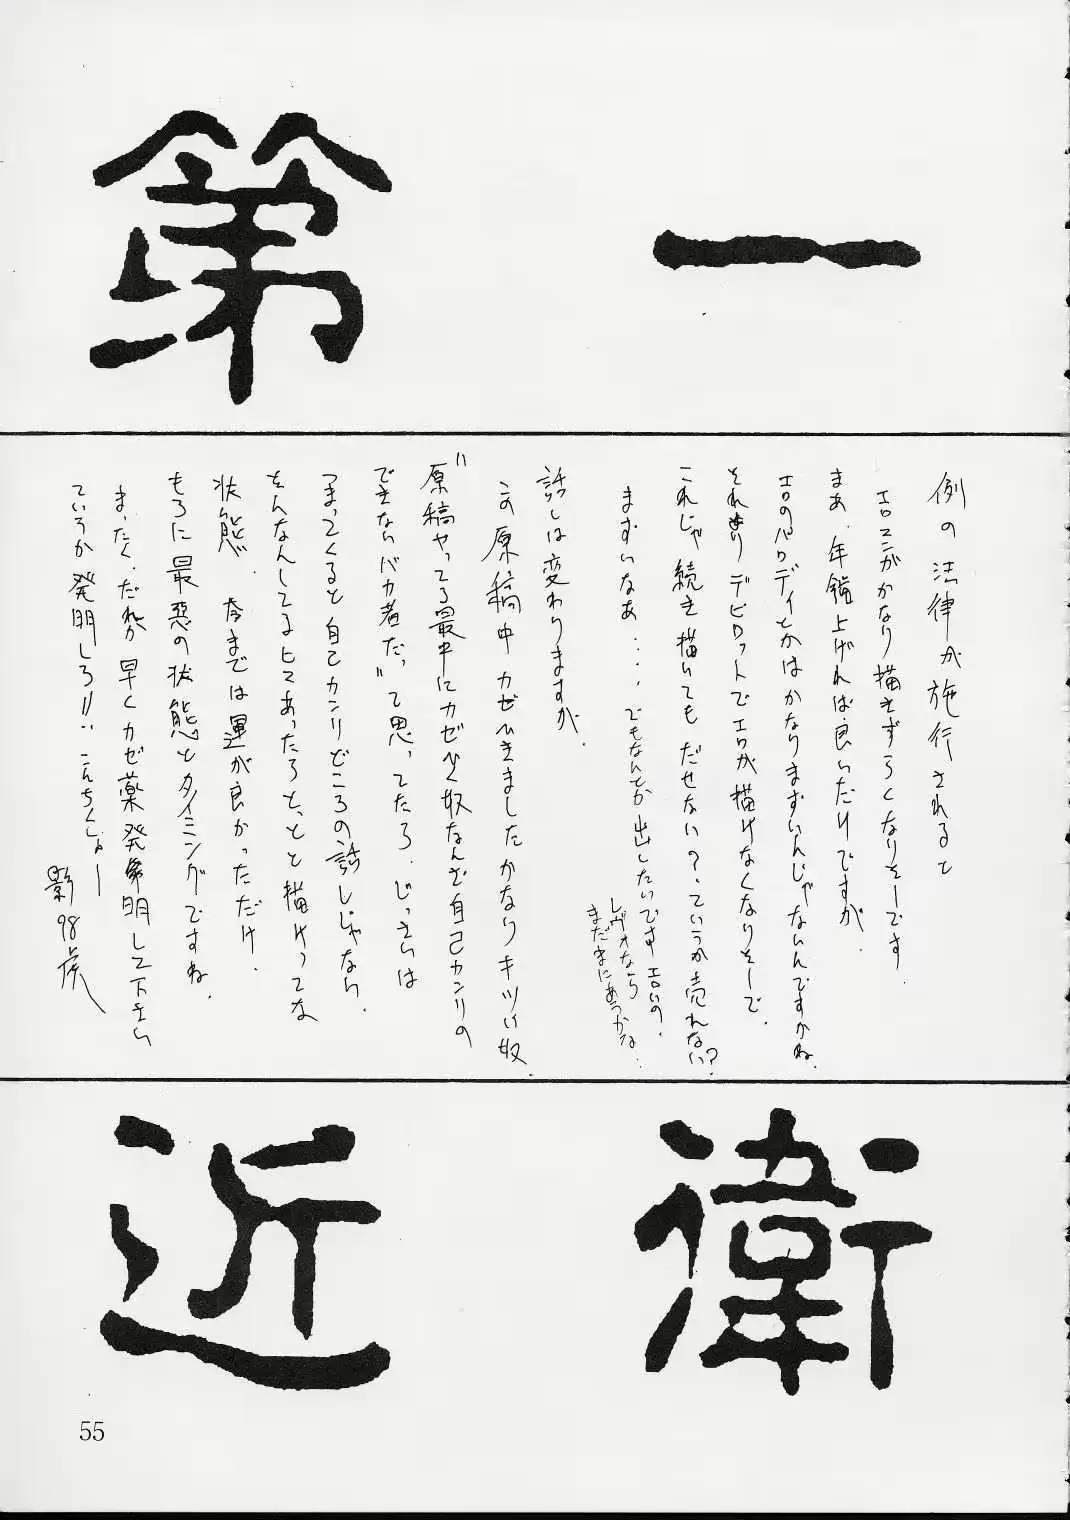 第一
例の法律が施行されると
エロマンがかなり描きずらくなりそーです
まあ、年齢上げれば良いだけですが、
エロのパロディとかはかなりまずいんじゃないんですかね、
それよりデビロットでエロが描けなくなりそーで、
これじゃ続き描いてもだせない?、ていうか売れない?
まずいなあ・・・・でもなんとか出したいですエロいの、
レヴォなら
まだまにあうかな…
話しは変わりますが、
この原稿中カゼひきましたかなりキツい奴
"原稿やってる最中にカゼひく奴なんぞ自己カンリの
できないバカ者だっ"て思ってたら、じっさいは
つまってくると自己カンリどころの話しじゃない、
そんなんしてるヒマあったらと、とと描けってな
状態、今までは運が良かっただけ、
もろに最悪の状態とタイミングですね、
まったく、だれか早くカゼ薬発明して下さい
ていうか発明しろ!!こんちくしょー
影98
近衛
55